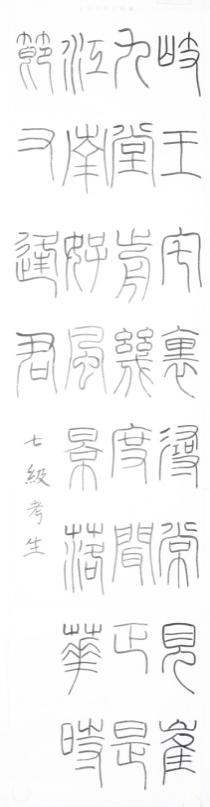 岐王宅裏尋常見崔
九堂前幾度聞正是
江南好風景落華時
節又逢君
七級考生